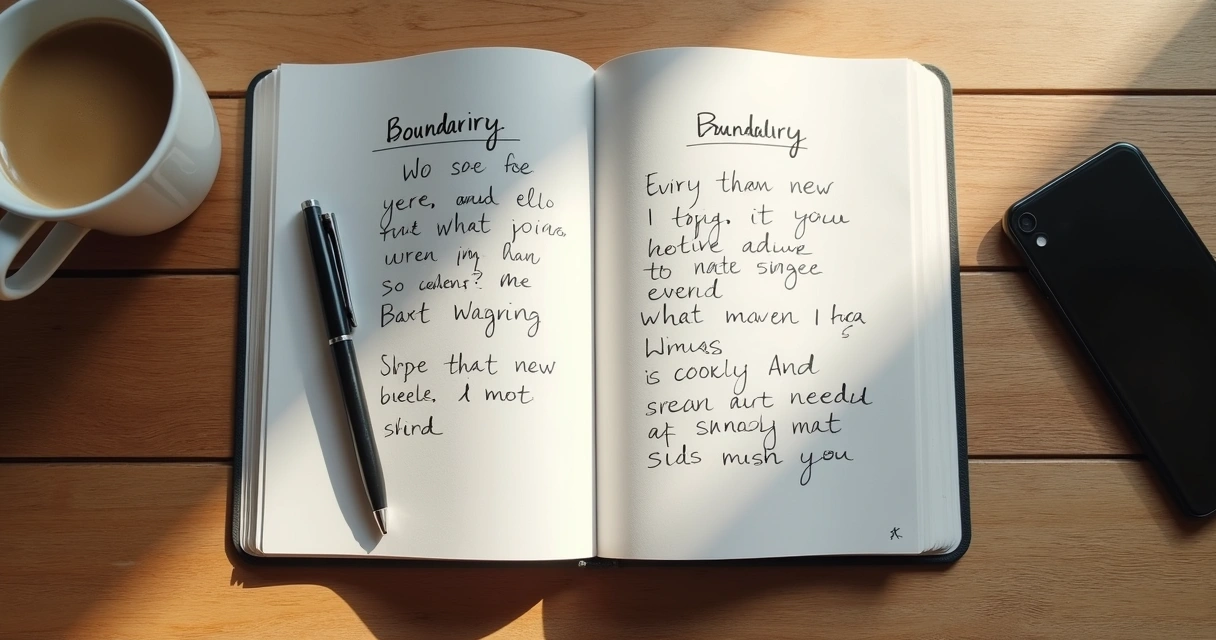 Boundariry
Wo soe foe
yere, and ello
fut what joins,
wren inj han
so ? me
Baxt Wagring
Slrpe that new
bieele. I mot
shird
Bundalury
Eviry than new
I topg. it your
hotive aduve
to nate singee
evend
what maven I
is cookly And
srean aut needul
af mat
sids mush you